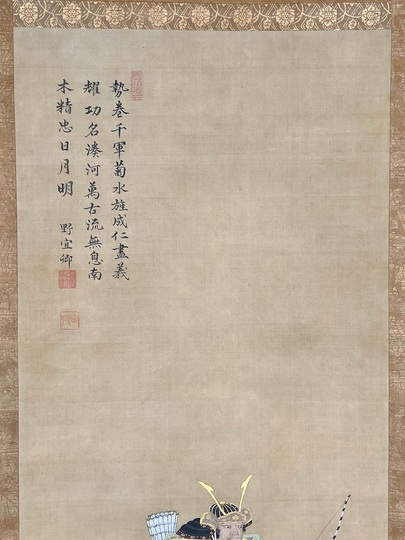 勢巻千軍菊水旌成仁盡義
耀功名湊河萬古流無息南
木精忠日月明
野宜卿